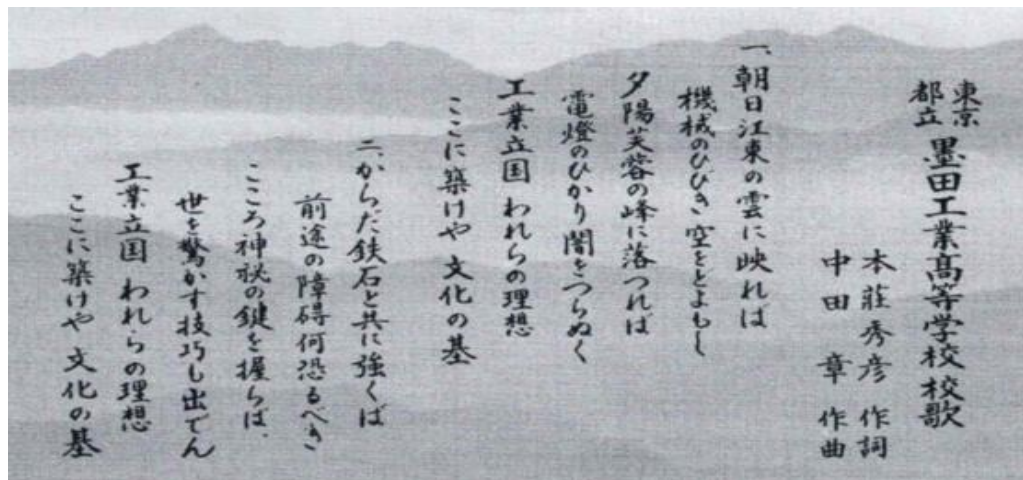 東京都立 墨田工業高等学校校歌
本荘秀彦 作詞
中田 章 作曲
一、朝日江東の雲に映れは
機械のひびき空をとよもし
夕陽芙蓉の峰に落つれば
電燈のひかり闇をつらぬく
工業立国 われらの理想
ここに築けや 文化の基
二、からだ鉄石と共に強くば
前途の障碍何恐るべき
こころ神秘の鍵を握らば、
世を驚かす技巧も出でん
工業立国 われらの理想
ここに築けや 文化の基